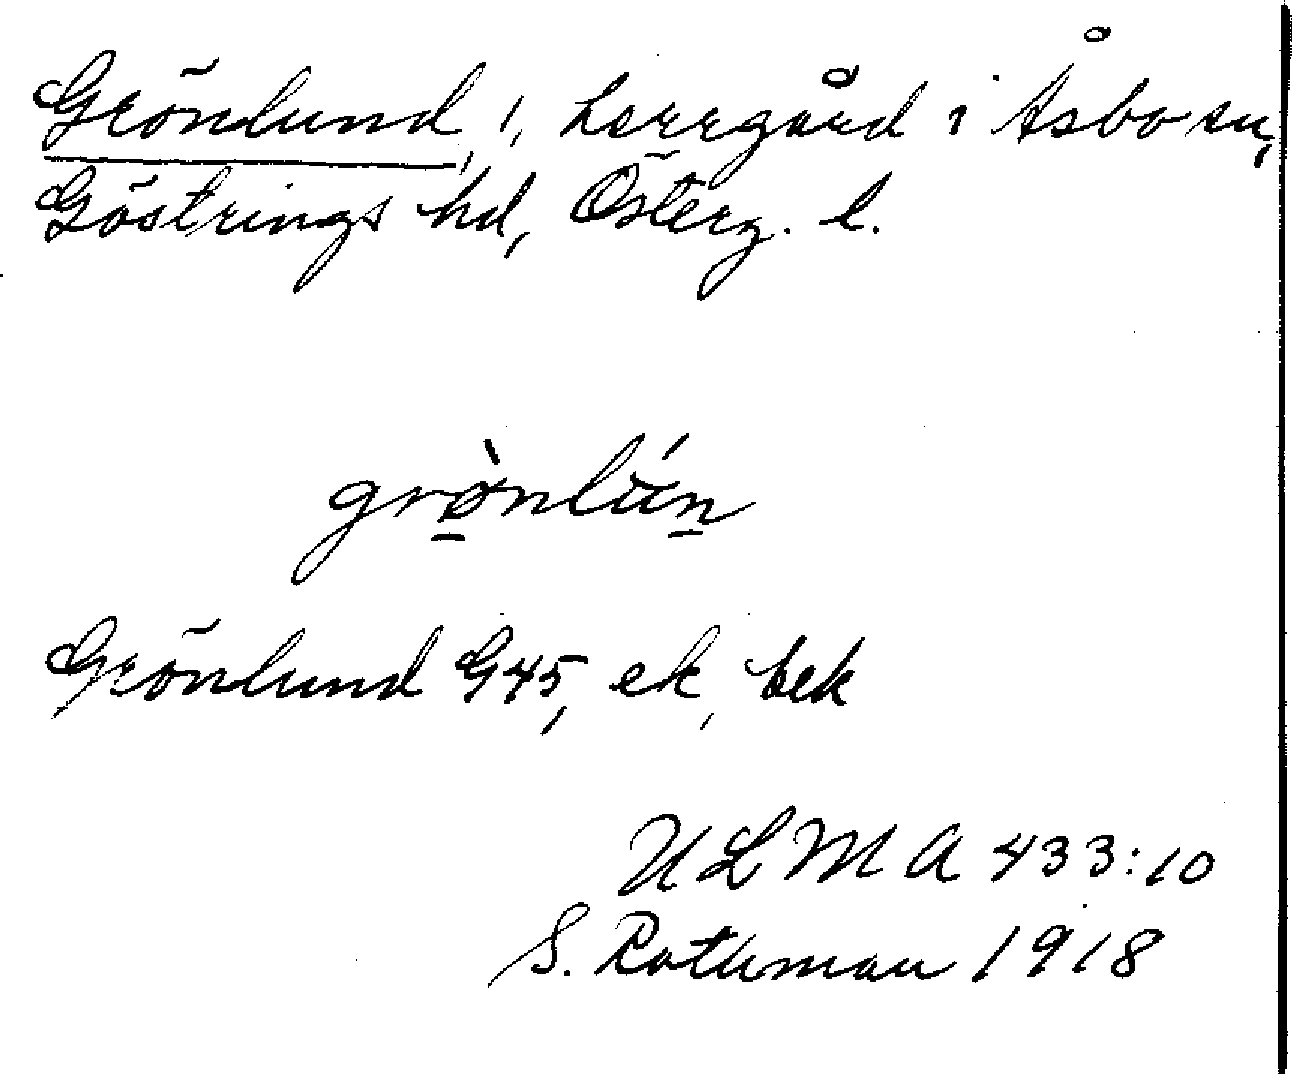 Grönlund, 1, herrgård i Åsbo sn,
Göstrings hd, Österg. l.
grø̠̀nlún̠
Grönlund G45, ek, bek
ULMA 433:10
S. Rothman 1918